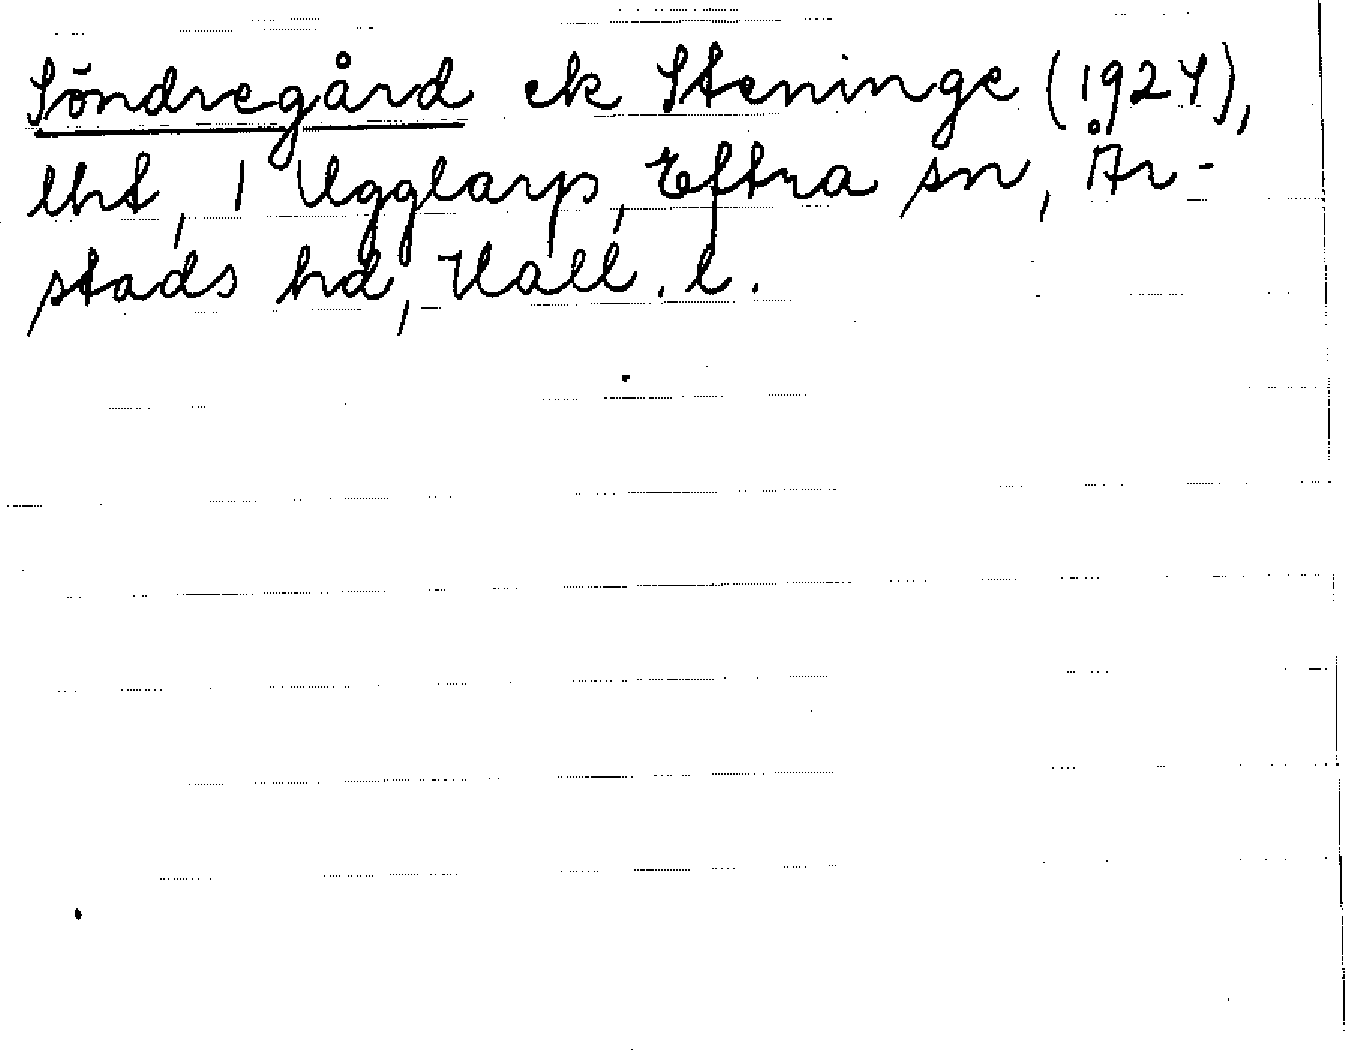 Söndregård ek Steninge (1927),
lht, 1 Ugglarp, Eftra sn, År-
stads hd, Hall. l.